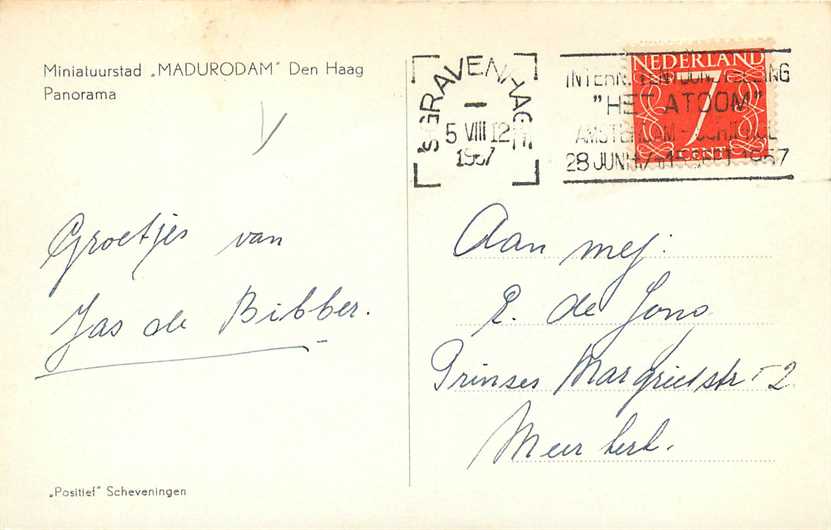 Miniatuurstad „MADURODAM" Den Haag
Panorama
'S GRAVENHAGE
5 VIII 12
1957
NEDERLAND
7
CENT
"HET ATOOM"
AMSTERDAM - SCHIPHOL
28 JUNI t/m 15 SEPT 1957
Groetjes van
Jas de Bibber.
Aan mej.
E. de Jong
Prinses Margrietstr 2
Meerkerk.
„Positief" Scheveningen